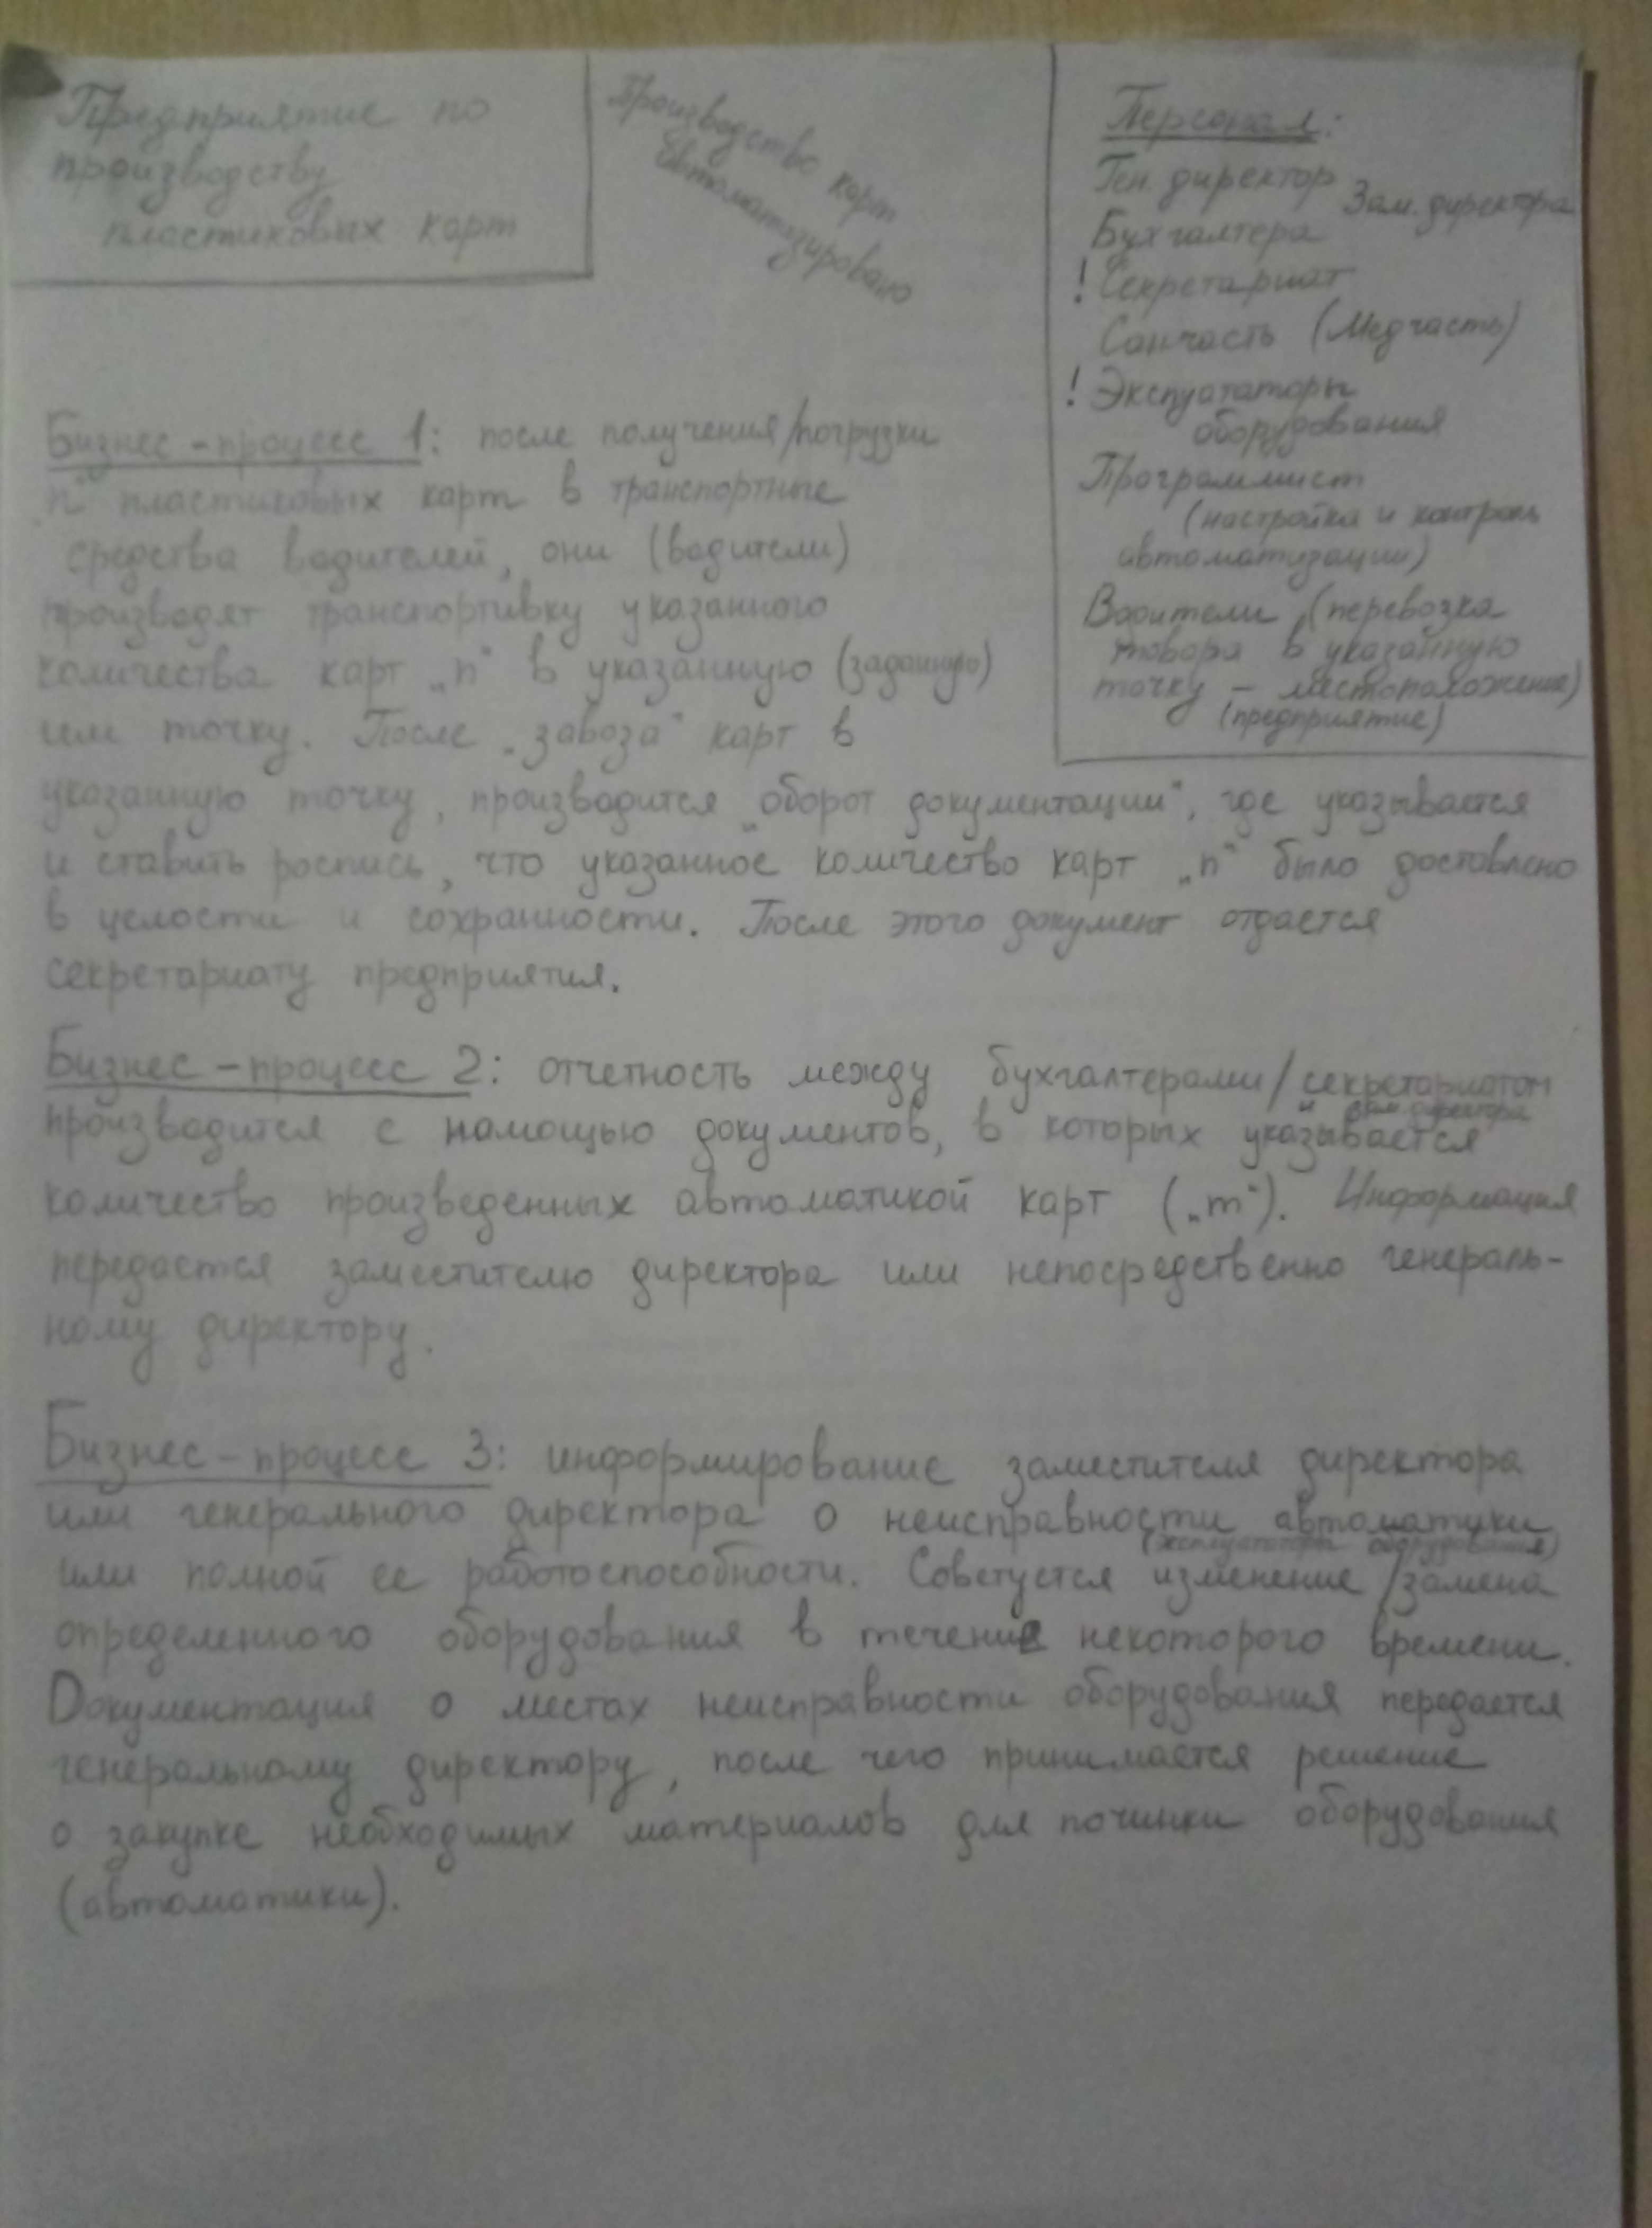 Предприятие по
производству
пластиковых карт
Производство карт
автоматизировано
Персонал:
Ген. директор
Зам. директора
Бухгалтера
! Секретариат
Санчасть (Медчасть)
! Экспуататоры
оборудования
Программист
(настройка и контроль
автоматизации)
Водители (перевозка
товара в указанную
точку – местоположение)
(предприятие)
Бизнес-процесс 1: после получения/погрузки
„n" пластиковых карт в транспортные
средства водителей, они (водители)
производят транспортивку указанного
количества карт „n" в указанную (заданную)
им точку. После „завоза" карт в
указанную точку, производится „оборот документации", где указывается
и ставить роспись, что указанное количество карт „n" было доставлено
в целости и сохранности. После этого документ отдается
секретариату предприятия.
Бизнес-процесс 2: отчетность между бухгалтерами/секретариатом
и зам. директора
производится с помощью документов, в которых указывается
количество произведенных автоматикой карт („m"). Информация
передается заместителю директора или непосредственно генераль-
ному директору.
Бизнес-процесс 3: информирование заместителя директора
или генерального директора о неисправности автоматики
(эксплуататоры оборудования)
или полной ее работоспособности. Советуется изменение/замена
определенного оборудования в течение некоторого времени.
Документация о местах неисправности оборудования передается
генеральному директору, после чего принимается решение
о закупке необходимых материалов для починки оборудования
(автоматики).